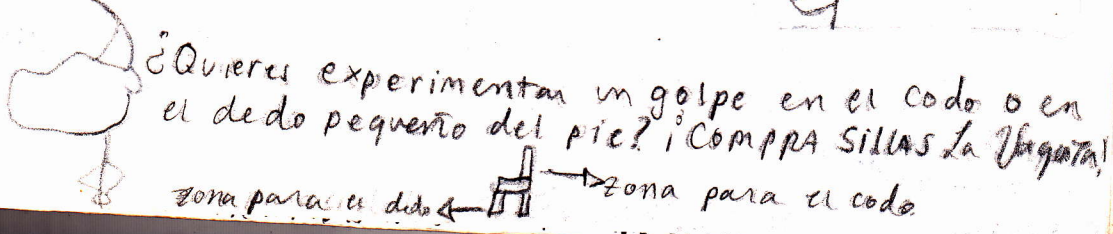 ¿Quieres experimentar un golpe en el codo o en
el dedo pequeño del pie? ¡COMPRA SILLAS La Vaquita!
zona para el dedo
zona para el codo